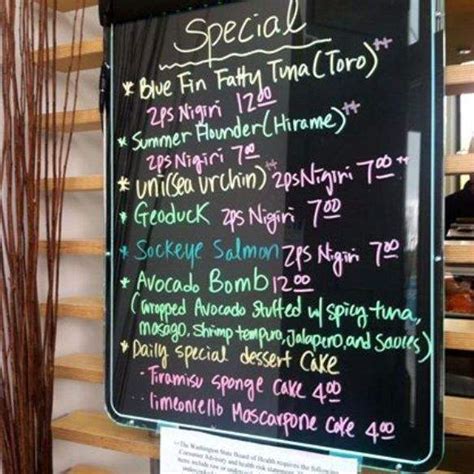 Special
* Blue Fin Fatty Tuna (Toro) **
2ps Nigiri 12.00
* Summer Flounder (Hirame) **
2ps Nigiri 7.00
* uni (Sea urchin) ** 2ps Nigiri 7.00 **
* Geoduck 2ps Nigiri 7.00
* Sockeye Salmon 2ps Nigiri 7.00
* Avocado Bomb 12.00
(Wrapped Avocado Stuffed w/ spicy tuna,
masago, Shrimp tempura, Jalapeno, and Sauces)
* Daily special dessert Cake
• Tiramisu sponge cake 4.00
• limeoncello Mascarpone cake 4.00
**The Washington State Board of Health requires the following
Consumer Advisory and health risk statements: